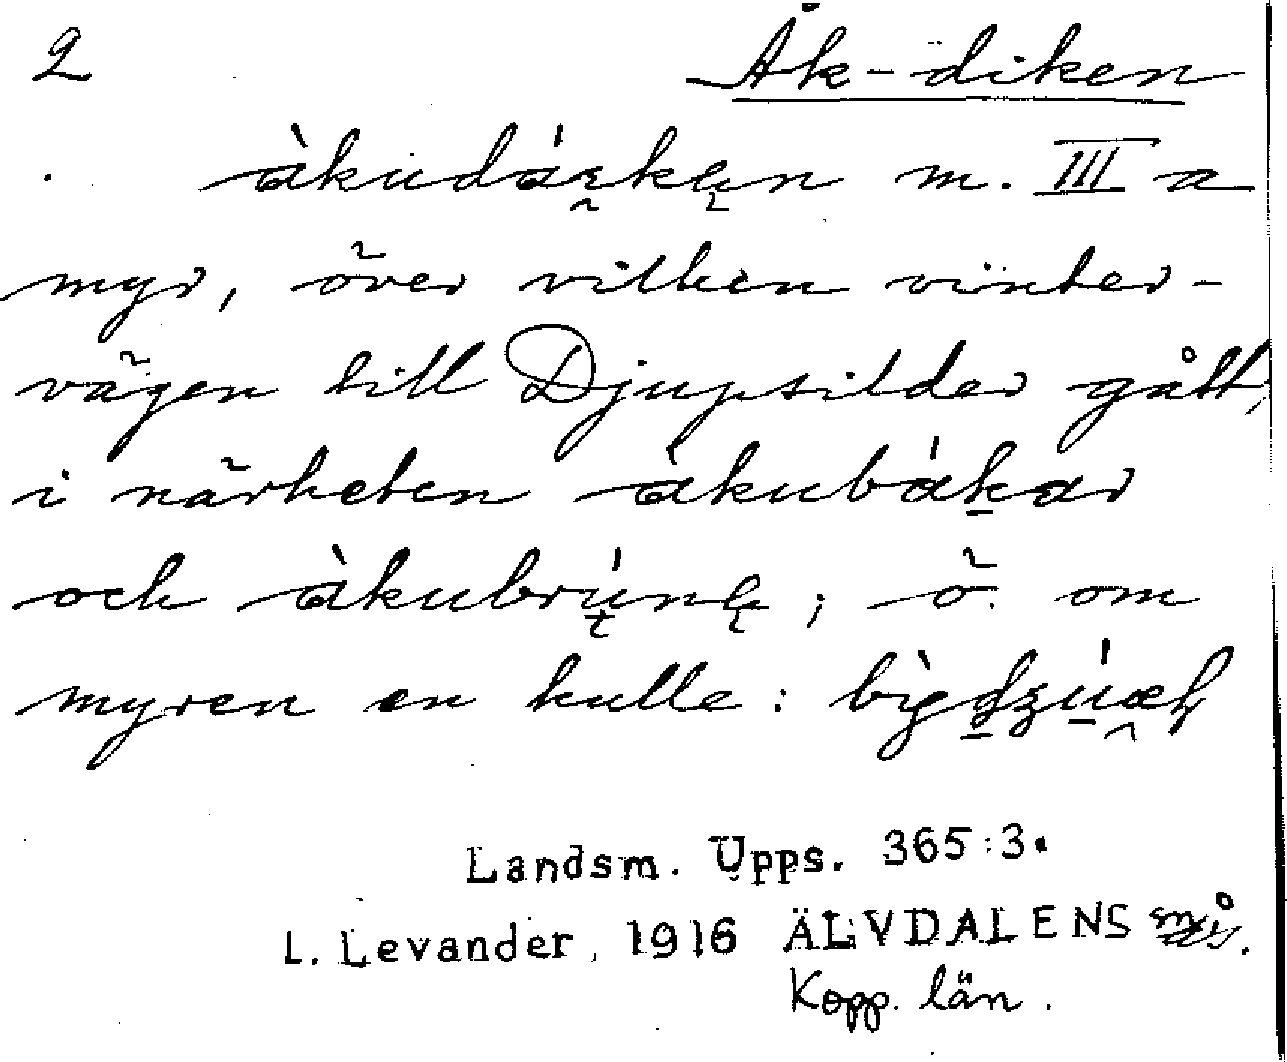 2 Åk-diken
àkudáı̨kęn m. III a
myr, över vilken vinter-
vägen till Djupsilder gått,
i närheten àkubák̠ar
och àkubrúnę; ö. om
myren en kulle: bìgd̠zú̠æł
Landsm. Upps. 365:3.
L. Levander, 1916 ÄLVDALENS
Kopp. län.